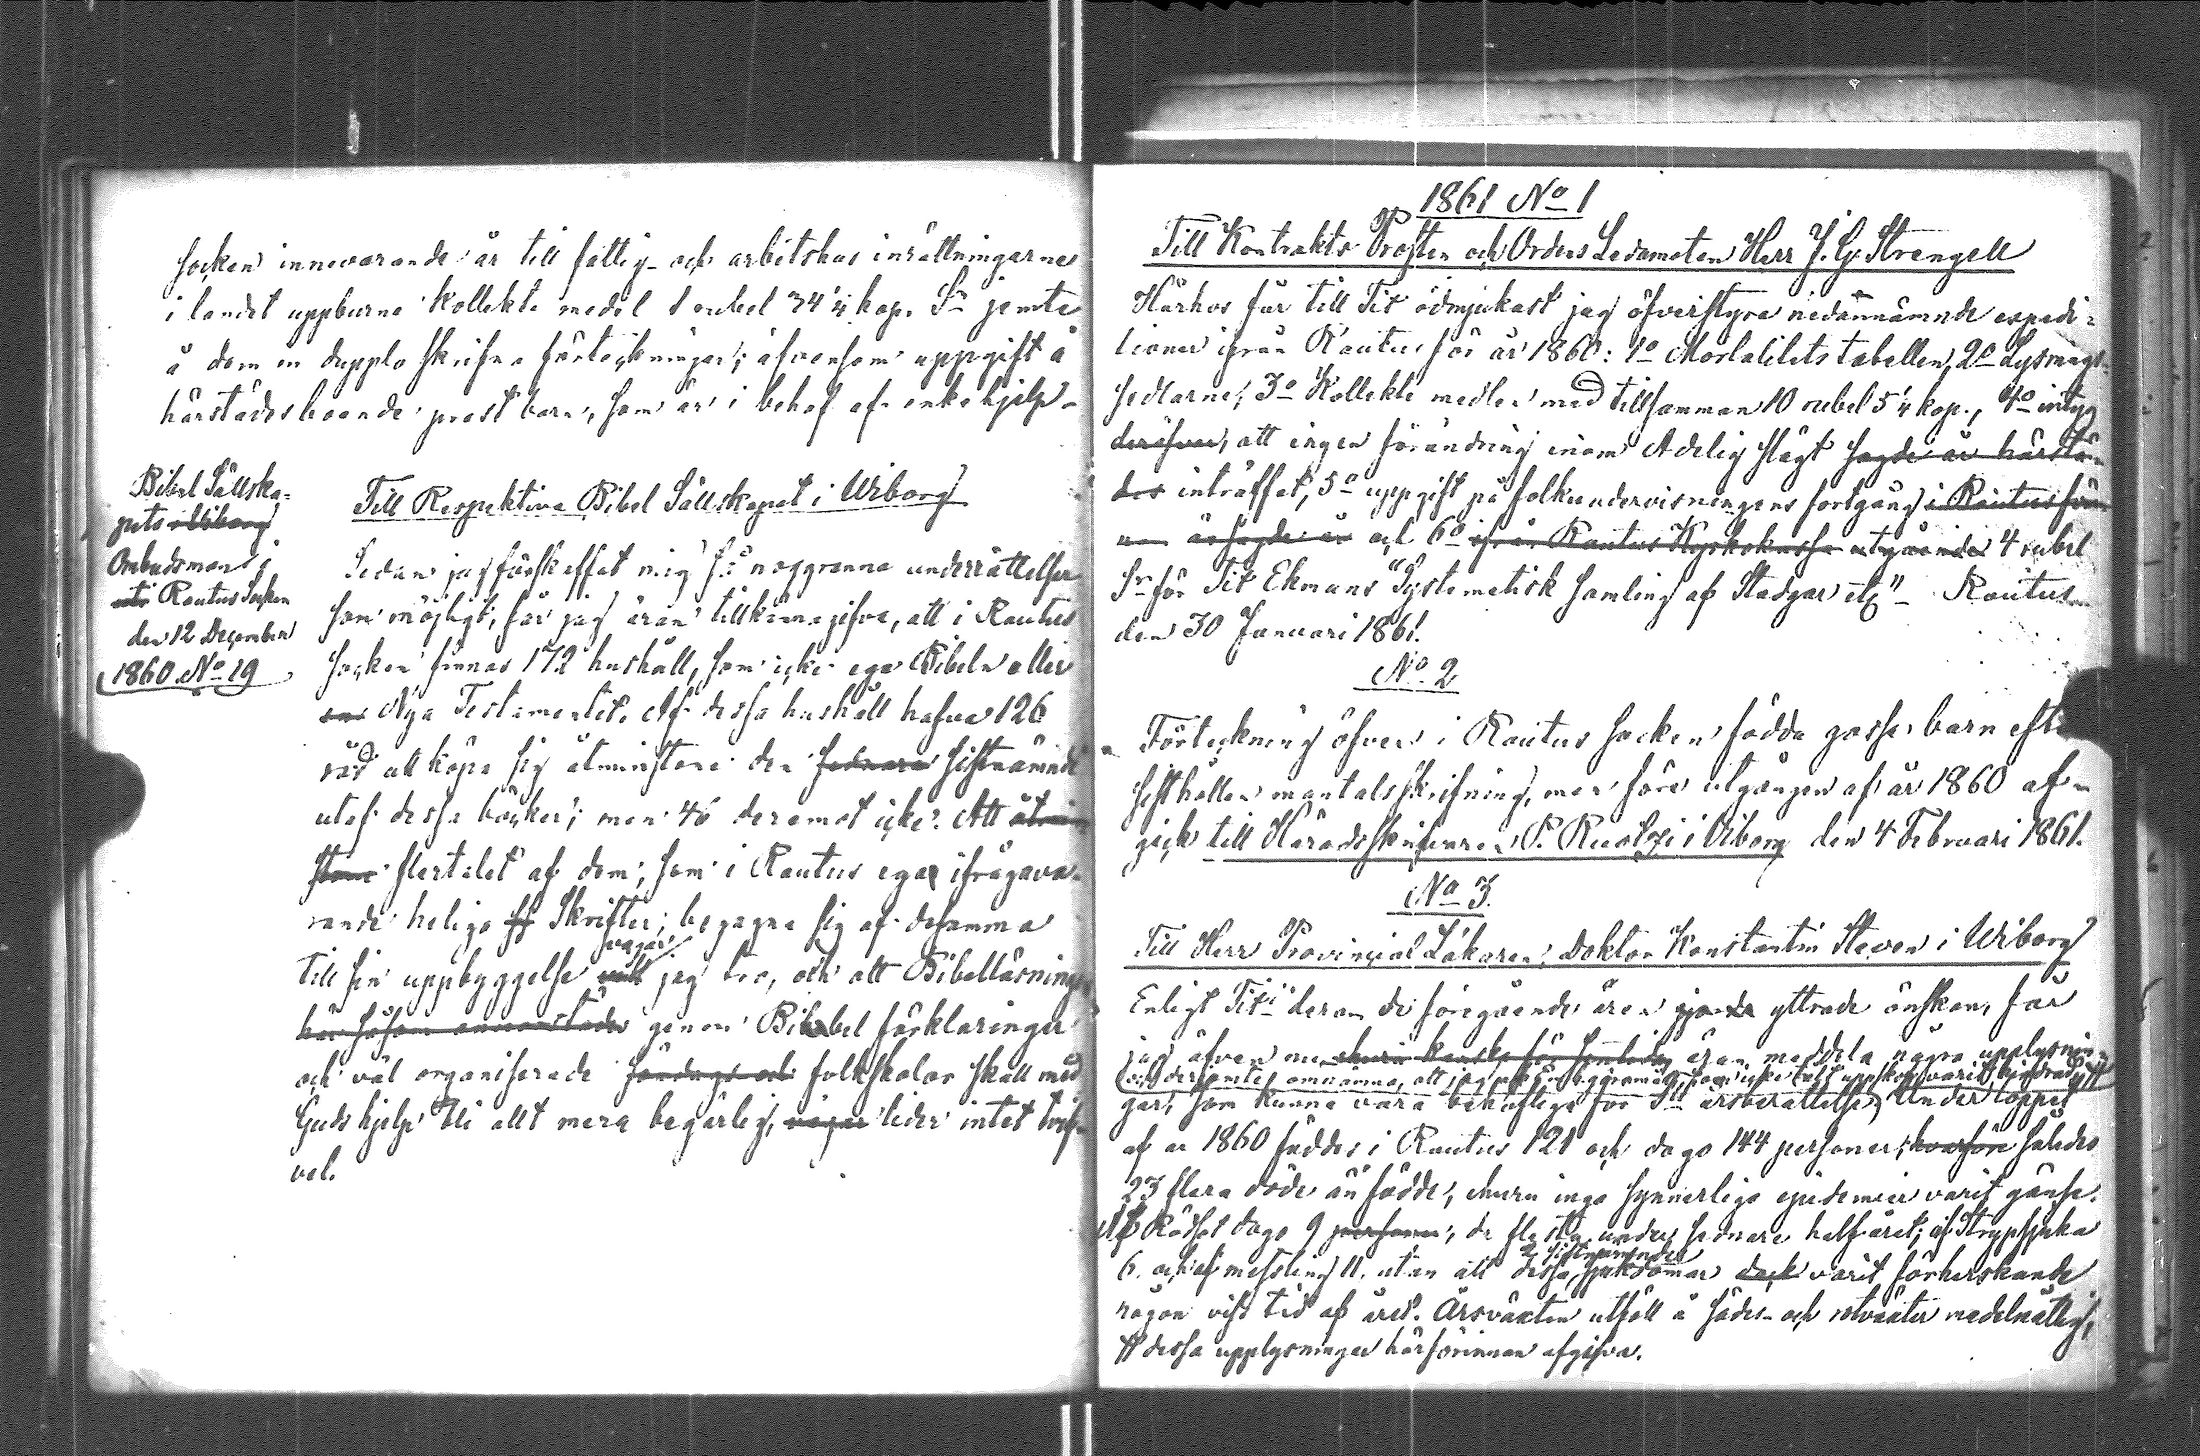 socken innevarande år till fattig- och arbetshus inrättningarne
i landet uppburne Kollekte medel 1 rubel 34 1/4 kop. Sr jemte
å dem in dupplo skrifne förteckningar; äfvensom uppgift å
härstädes boende prest barn, som är i behof af enkehjelp.
Bibel Sällska-
pets i Wiborg
Ombudsman i
uti Rautus Socken
den 12 December
1860 No 19
Till Respektive Bibel Sällskapet i Wiborg
Sedan jag förskaffat mig så noggranna underrättelser
som möjligt, får jag äran tillkännagifva, att i Rautus
socken finnas 172 hushåll, som icke ega Bibeln eller
Nya Testamentet. Af dessa hushåll hafva 126
råd att köpa sig åtminstone den sednare sistnämnde
utaf dessa böcker; men 46 deremot icke. Att åtmin-
stone flertalet af dem, som i Rautus ega ifrågava-
rande heliga Skrifter, begagna sig af desamma
till sin uppbyggelse vill vågar jag tro, och att Bibelläsningen
här såsom annorstädes genom Bibel förklaringar
och väl organiserade söndags och folkskolor skall med
Guds hjelp bli allt mera begärlig, vågar lider intet tvif-
vel.
1861 No 1
Till Kontrakts Prosten och Ordens Ledamoten Herr J. G. Strengell
Härhos får till Tit ödmjukast jag öfverstyra nedannämnde expedi-
tioner ifrån Rautus för år 1860: 1o Mortalitets tabellen, 2o Lysnings-
sedlarne, 3o Kollekte medlen med tillsamman 10 rubel 5 1/4 kop., 4o intyg
deröfver, att ingen förändring inom Adelig slägt sagde år härstä-
des inträffat, 5o uppgift på folkundervisningens fortgång i Rautus för-
och 6o ifrån Rautus Kyrkokassa utgående 4 rubel
Sr för Tit Ekmans "Systematisk samling af Stadgar etc" - Rautus
den 30 Januari 1861.
No 2
Förteckning öfver i Rautus socken födda gosse barn efter
sisthållen mantalsskrifning, men före utgången af år 1860 af-
gick till Häradsskrifvaren P. Ruolzi i Viborg den 4 Februari 1861.
No 3.
Till Herr Provincial Läkaren, Doktor Konstantin Steven i Wiborg
Enligt Tits deran de föregående åren gjorde yttrade önskan, får
jag äfven nu, ehuru kanske för sent äran meddela några upplysnin-
och derjemte omnämna, att jag icke
gar, som kunna vara behöflige för årsberättelse. Under loppet
af år 1860 föddes i Rautus 121 och dogo 144 personer, hvarför således
23 flera döde än födde, ehuru inga synnerliga epidemier varit gänse.
Af Rödsot dogo 9 personer, de flesta under sednare halfåret; af Strypsjuka
6. och af messling 11. utan att dessa 2 sistnämnde sjukdomar dock varit förherskande
någon viss tid af året. Årsväxten utföll å sädes- och rotväxter medelmåttig,
# dessa upplysningar härförinnan afgifva.